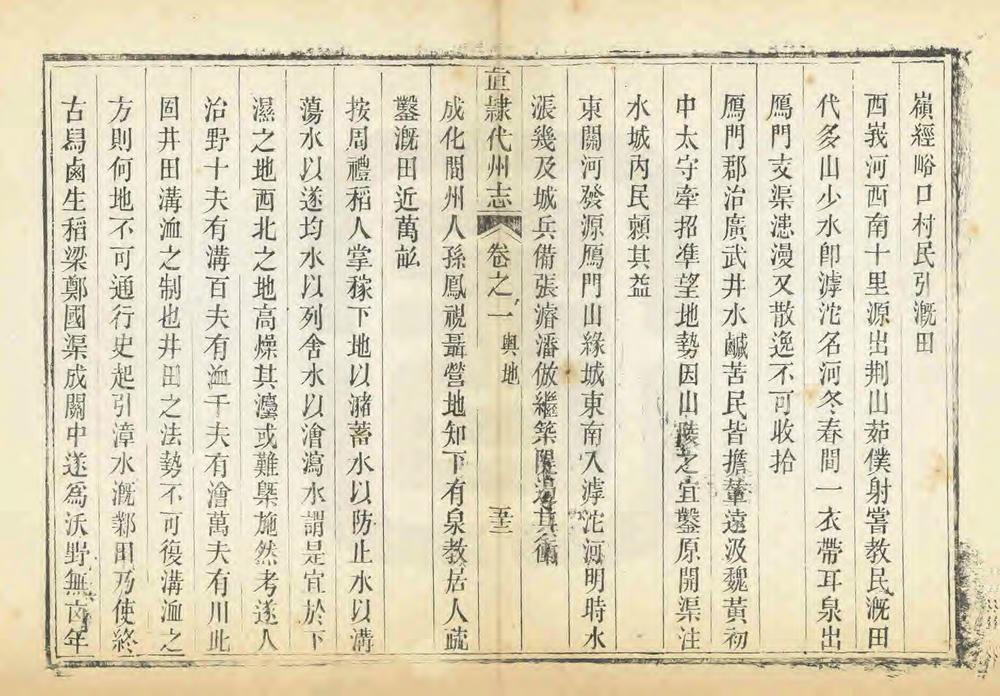 嶺經峪口村民引漑田
西峩河西南十里源出荆山茹僕射嘗教民漑田
代多山少水卽滹沱名河冬春間一衣帶耳泉出
鴈門支渠漶漫又散逸不可收拾
鴈門郡治廣武井水鹹苦民皆擔輦遠汲魏黃初
中太守牽招凖望地勢因山陵之宜鑿原開渠注
水城內民賴其益
東關河發源鴈門山緣城東南入滹沱河明時水
漲幾及城兵備張濬潘倣繼築隄過其衝
直隸代州志 卷之一 輿地 五三
成化間州人孫鳳視聶營地知下有泉教居人疏
鑿漑田近萬畝
按周禮稻人掌稼下地以瀦蓄水以防止水以溝
蕩水以遂均水以列舍水以澮瀉水謂是宜於下
濕之地西北之地高燥其灋或難槩施然考遂人
治野十夫有溝百夫有洫千夫有澮萬夫有川此
固井田溝洫之制也井田之法勢不可復溝洫之
方則何地不可通行史起引漳水漑鄴田乃使終
古舄鹵生稻梁鄭國渠成關中遂爲沃野無凶年